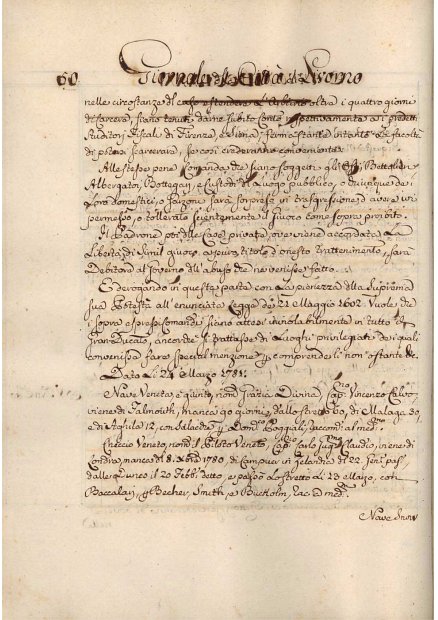 60 Giornale della Città di Livorno
nelle circostanze del caso estendere l'arbitrio oltre i quattro giorni
di carcere, siano tenuti darne subito conto respettivamente ai predetti
Auditori Fiscali di Firenze, e Siena, ferma stante intanto la facoltà
di potersi scarcerare, se così crederanno conveniente.
Alle stesse pene Comanda che siano soggetti gli Osti, Bettolieri
Albergatori, Bottegai, e Custodi di Luogo pubblico, o chiunque de
loro domestici, o garzoni sarà sorpreso in trasgressione d'avere
permesso, o tollerato scientemente il giuoco come sopra proibito.
Il Padrone poi delle Case private, ove viene accordata la
Libertà di simil giuoco, a puro titolo d'onesto trattenimento, sarà
Debitore al Governo dell'abuso che ne venisse fatto.
E derogando in questa parte con la pienezza della Suprema
sua Potestà all'enunciata Legge de' 21 Maggio 1602. Vuole che
i sopra espressi Comandi siano attesi inviolabilmente in tutto il
Gran Ducato, ancorche si trattasse di Luoghi privilegiati dei quali
convenisse fare special menzione, e comprendergli non ostante &c.
Data Li 24 Marzo 1781.
Nave Veneta, e quinto, nom. Gratie Divina, Cap.no Vincenzo Calvo,
viene di Falmouth, manca 90 giorni, dallo stretto 60, di Malaga 30,
e di Aquila 12, con Salacche, a Dom. Poggiali, raccom. al med.mo
Checcio Veneto, nom. il Eletto Veneto, Cap.no Carlo Claudio, viene di
Londra, manca da 8. Xbre 1780, di Campver in Zelanda di 22. Genn. pas.
dalle Dunes il 20 Febb. detto, e passò lo stretto li 13 Marzo, con
Baccalari, a Becher, Smith, e Buckolm, rac. d. med.
Nave Snow